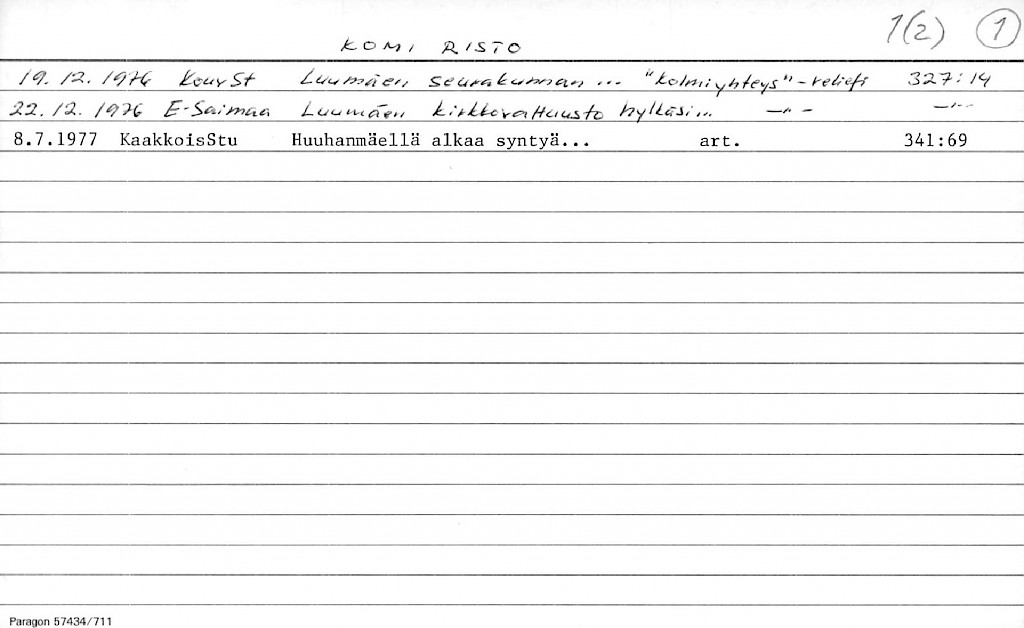 1(2) 1
KOMI RISTO
19.12.1976 KouvSt Luumäen seurakunnan ... "Kolmiyhteys"-reliefi 327:14
22.12.1976 E-Saimaa Luumäen kirkkovaltuusto hylkäsi... —"— —"—
8.7.1977 KaakkoisStu Huuhanmäellä alkaa syntyä... art. 341:69
Paragon 57434/711